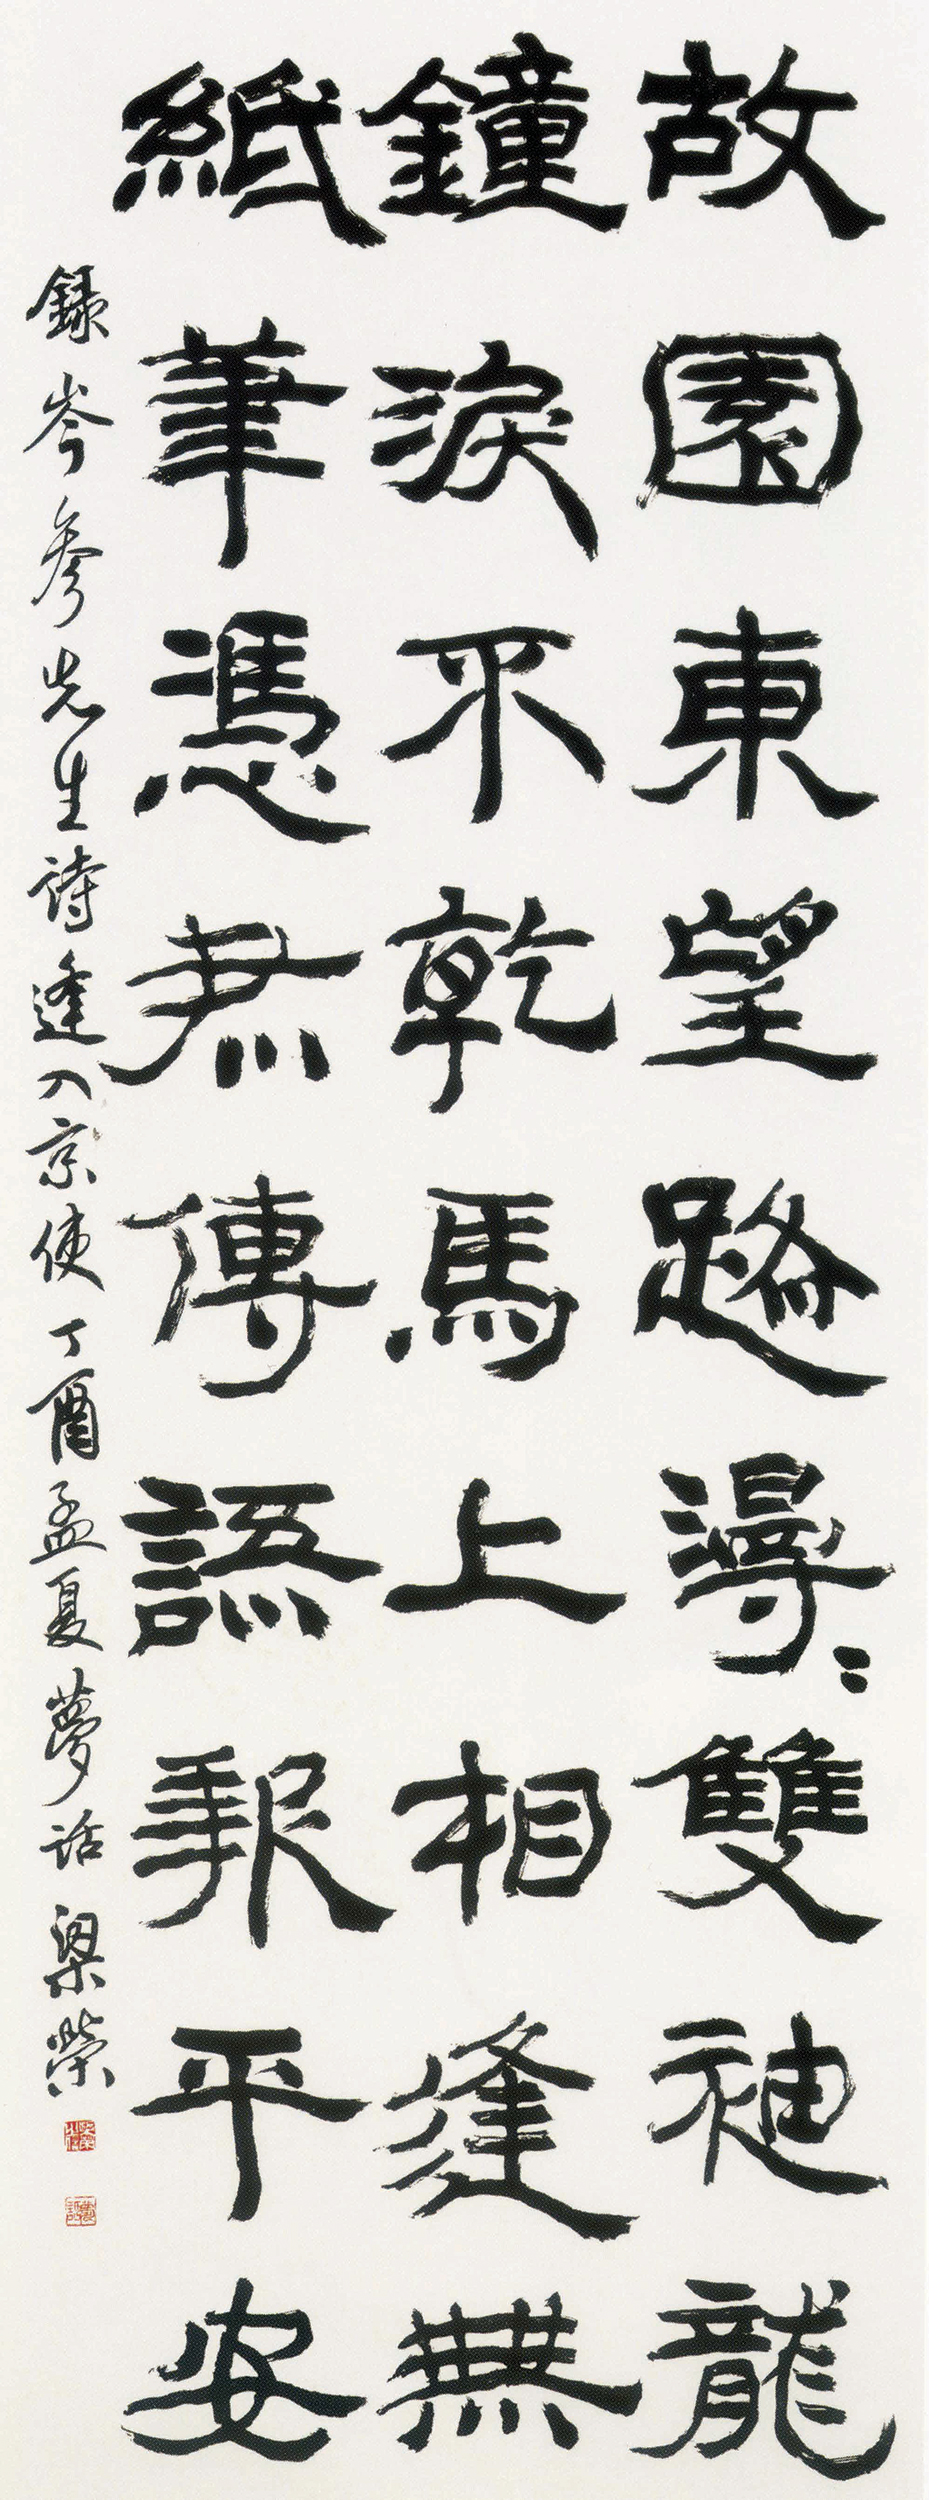 故園東望路漫〻雙袖龍
鐘淚不乾馬上相逢無
紙筆憑君傳語報平安
錄岑參先生詩逢入京使丁酉孟夏夢話梁榮